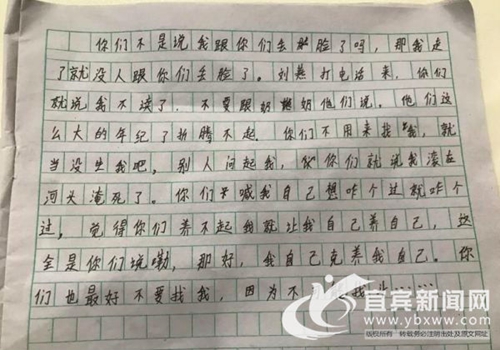 你们不是说我跟你们去掉脸了吗，那我走
了就没人跟你们去脸了。刘燕打电话来，你们
就说我不读了，不要跟奶奶他们说。他们这
么大的年纪了折腾不起。你们不用来找我，就
当没生我吧，别人问起我，你们就说我滚在
河头淹死了。你们喊我自己想咋个过就咋个
过，觉得你们养不起我就让我自己养自己，这
全是你们说嘞，那好，我自己克养我自己。你
们也最好不要找我，因为不
宜宾新闻网
www.ybxww.com
版权所有 转载务必注明出处及原文网址